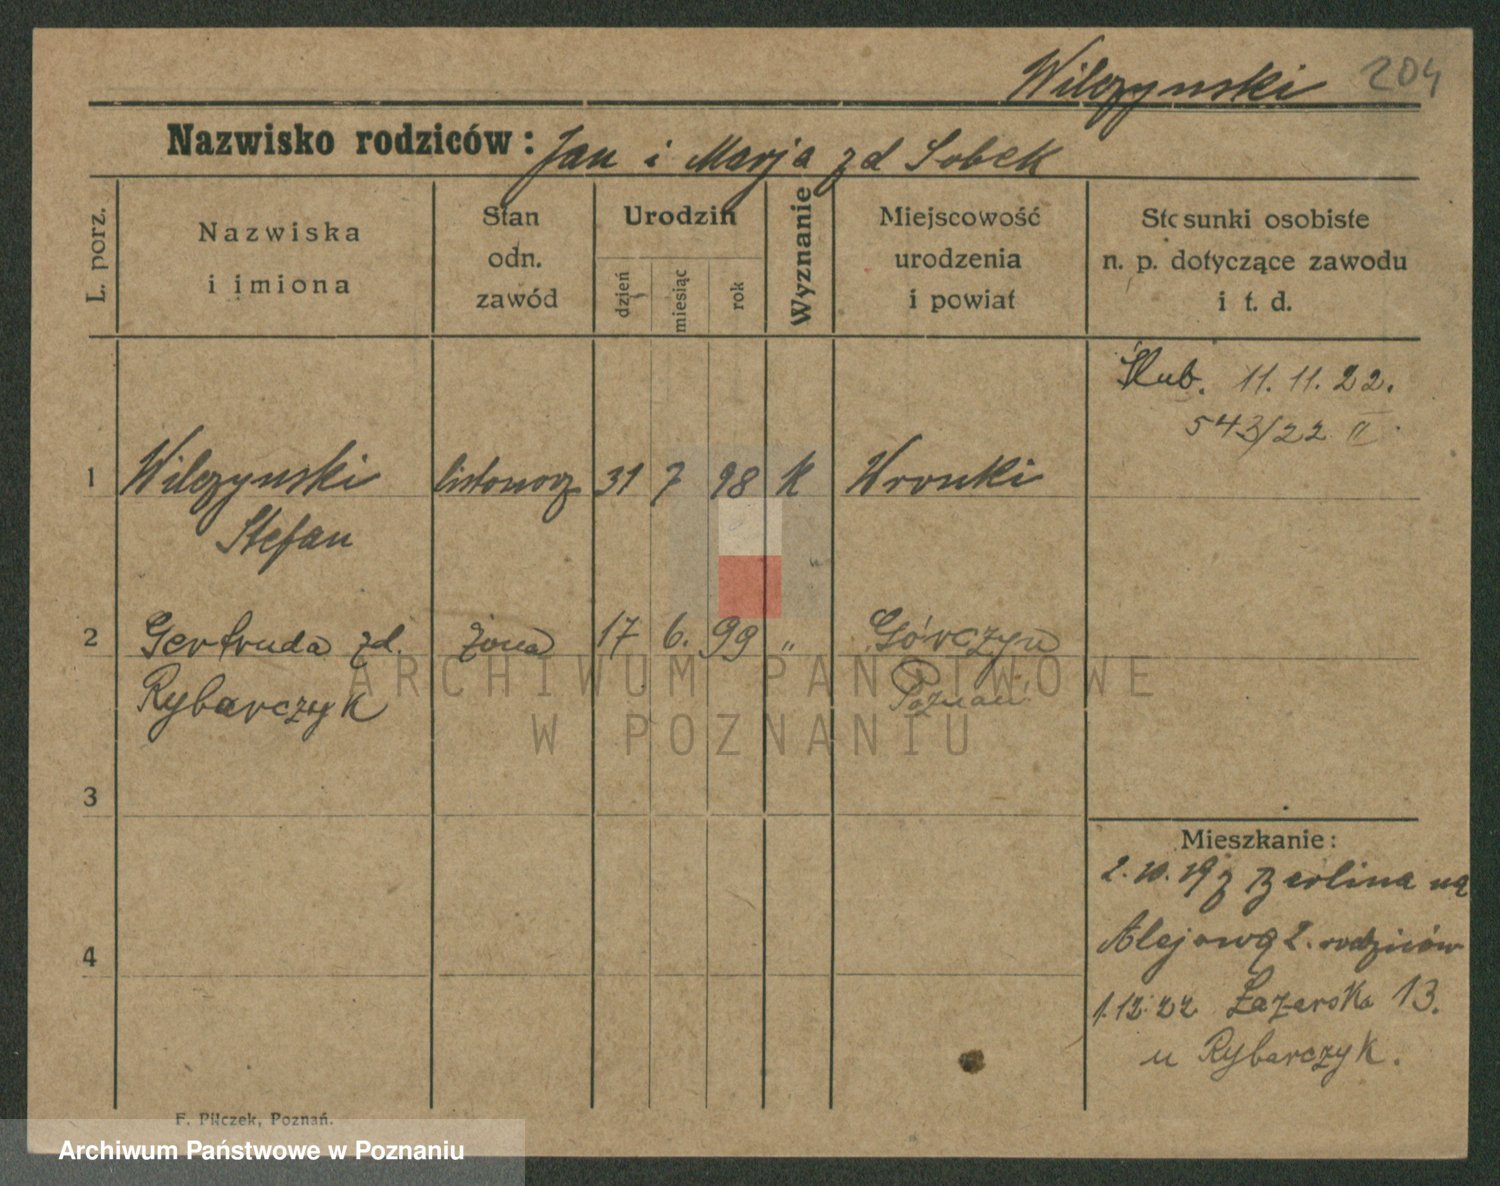 Wilczynski 204
Nazwisko rodziców: Jan i Marja zd Sobek
L. porz.
Nazwiska
i imiona
Stan
odn.
zawód
Urodzin
dzień
miesiąc
rok
Wyznanie
Miejscowość
urodzenia
i powiat
Stosunki osobiste
n. p. dotyczące zawodu
i t. d.
Ślub. 11.11.22.
543/22 II
1 Wilczynski listonosz 31 7 98 K Wronki
Stefan
2 Gertruda zd. żona 17 6. 99 " Górczyn
Rybarczyk Poznań
3
4
Mieszkanie:
2.10.19 z Berlina na
Alejową 2. rodziców
1.12.22 Łazarska 13.
u Rybarczyk.
F. Pilczek, Poznań.
ARCHIWUM PAŃSTWOWE
W POZNANIU
Archiwum Państwowe w Poznaniu